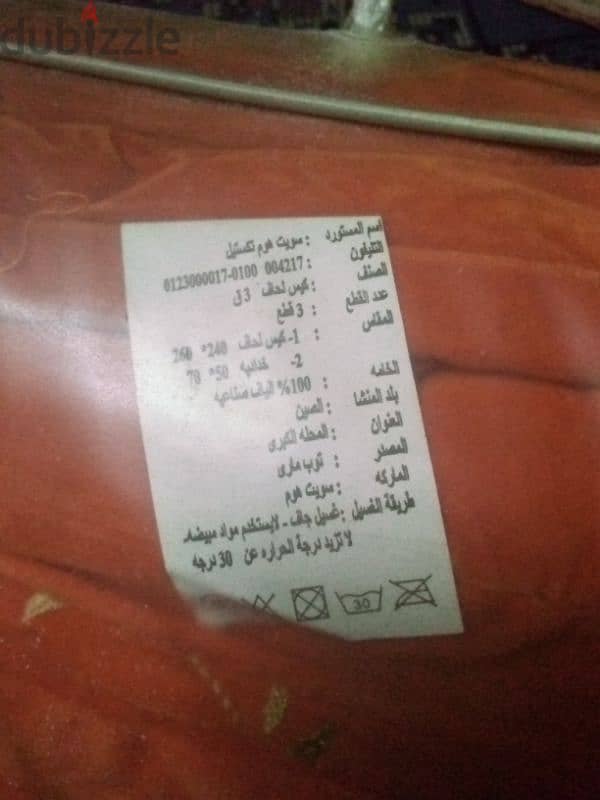 dubizzle
اسم المستورد : سويت هوم تكستيل
التليفون : 004217 0100-0123000017
الصنف : كيس لحاف 3 ق
عدد القطع : 3 قطع
المقاس : 1- كيس لحاف 240* 260
2- خداديه 50* 70
الخامه : 100% الياف صناعيه
بلد المنشا : الصين
العنوان : المحله الكبرى
المصدر : توب مارى
الماركه : سويت هوم
طريقة الغسيل : غسيل جاف - لايستخدم مواد مبيضه
لا تزيد درجة الحراره عن 30 درجه
30